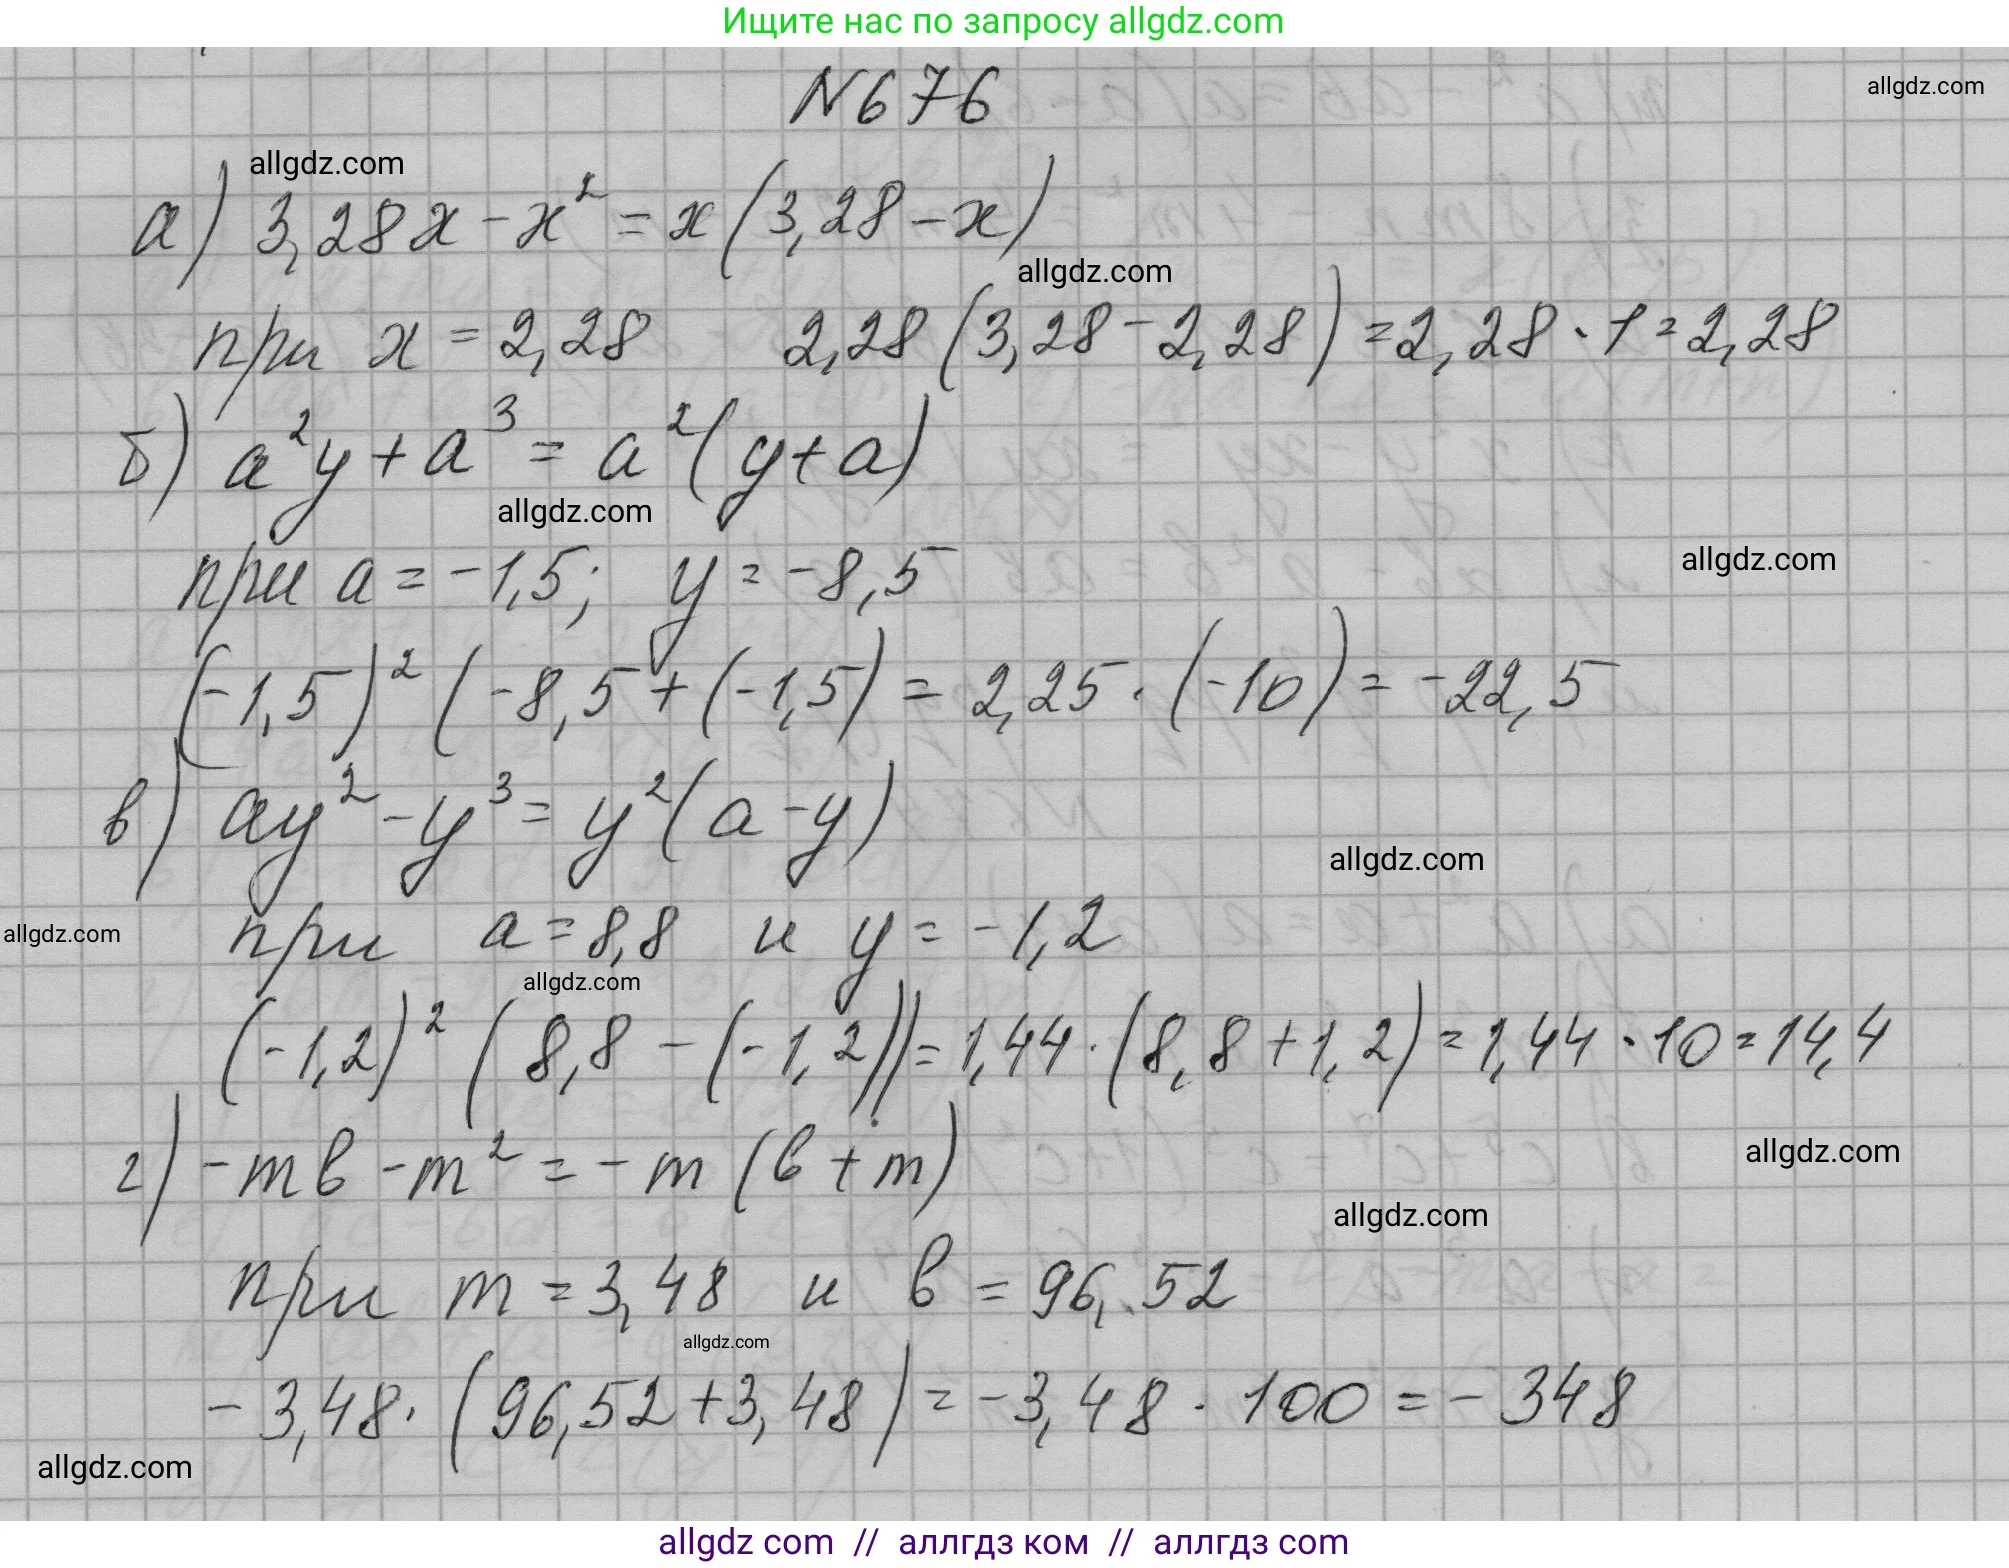 Ищите нас по запросу allgdz.com
N676
allgdz.com
allgdz.com
а) 3,28x - x² = x(3,28 - x)
allgdz.com
при x = 2,28 2,28(3,28 - 2,28) = 2,28 · 1 = 2,28
б) a²y + a³ = a²(y + a)
allgdz.com
при a = -1,5; y = -8,5
allgdz.com
(-1,5)² (-8,5 + (-1,5) = 2,25 · (-10) = -22,5
в) ay² - y³ = y²(a - y)
allgdz.com
при a = 8,8 и y = -1,2
allgdz.com
allgdz.com
(-1,2)² (8,8 - (-1,2)) = 1,44 · (8,8 + 1,2) = 1,44 · 10 = 14,4
г) -mв - m² = -m(в + m)
allgdz.com
allgdz.com
при m = 3,48 и в = 96,52
allgdz.com
-3,48 · (96,52 + 3,48) = -3,48 · 100 = -348
allgdz.com
allgdz com // аллгдз ком // аллгдз com